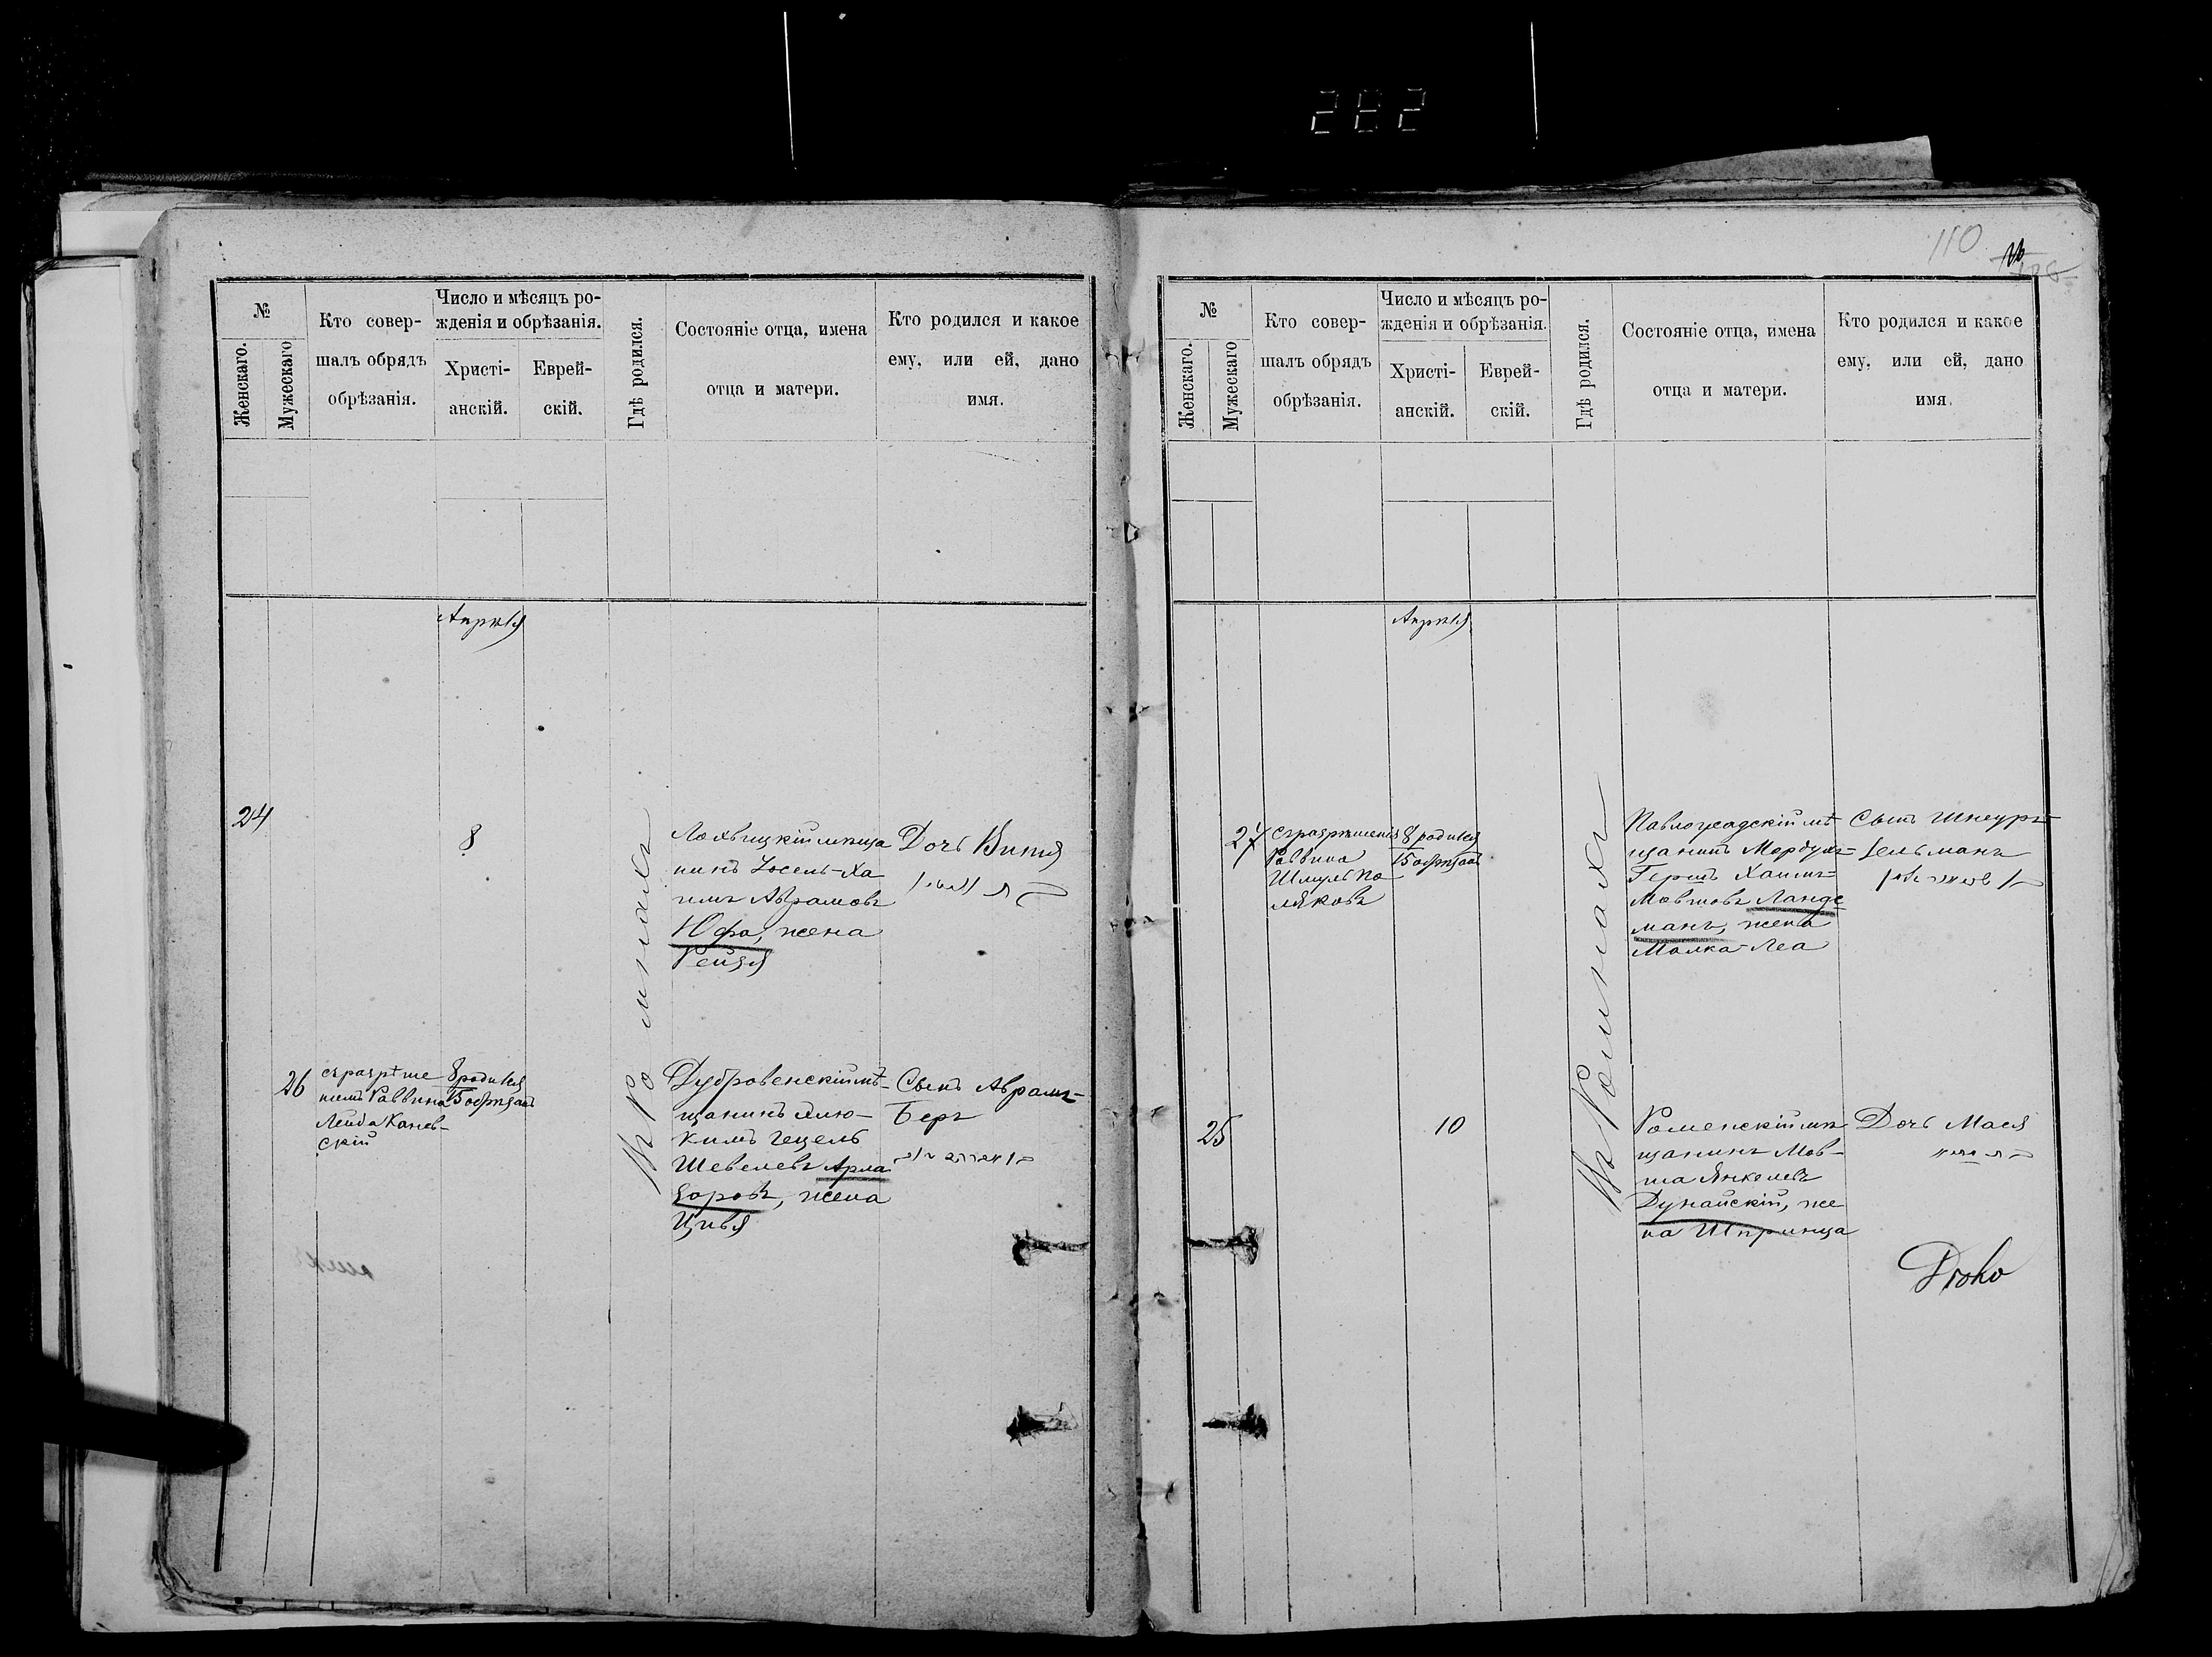 282
110
№
Женскаго.
Мужескаго
Кто совер-
шалъ обрядъ
обрѣзанія.
Число и мѣсяцъ ро-
жденія и обрѣзанія.
Христі-
анскій.
Еврей-
скій.
Гдѣ родился.
Состояніе отца, имена
отца и матери.
Кто родился и какое
ему, или ей, дано
имя.
Апрѣля
24
8
Въ Ромнахъ
Лохвицкій мѣща
нинъ Іосель-Ха
имъ Абрамовъ
Юфа, жена
Рейзя
Дочь Витя
26
съ разрѣше
нiемъ Раввина
Лейба Канев-
скій
8 родился
15 обрѣзанъ
Дубровенскій мѣ-
щанинъ Элю-
кимъ Гецель
Шевелевъ Арла
заровъ, жена
Цивья
Сынъ Абрамъ-
Беръ
№
Женскаго.
Мужескаго
Кто совер-
шалъ обрядъ
обрѣзанія.
Число и мѣсяцъ ро-
жденія и обрѣзанія.
Христі-
анскій.
Еврей-
скій.
Гдѣ родился.
Состояніе отца, имена
отца и матери.
Кто родился и какое
ему, или ей, дано
имя.
Апрѣля
27
съ разрѣшенія
Раввина
Шмуль По-
ляковъ
8 родился
15 обрѣзанъ
Въ Ромнахъ
Павлоградскій мѣ
щанинъ Мордухъ-
Гершъ Хаимъ-
Мовшовъ Ланде
манъ, жена
Малка-Леа
Сынъ Шнеуръ-
Зельманъ
25
10
Роменскій мѣ
щанинъ Мов-
ша Янкелевъ
Дунайскій, же
на Шпринца
Дочь Мася